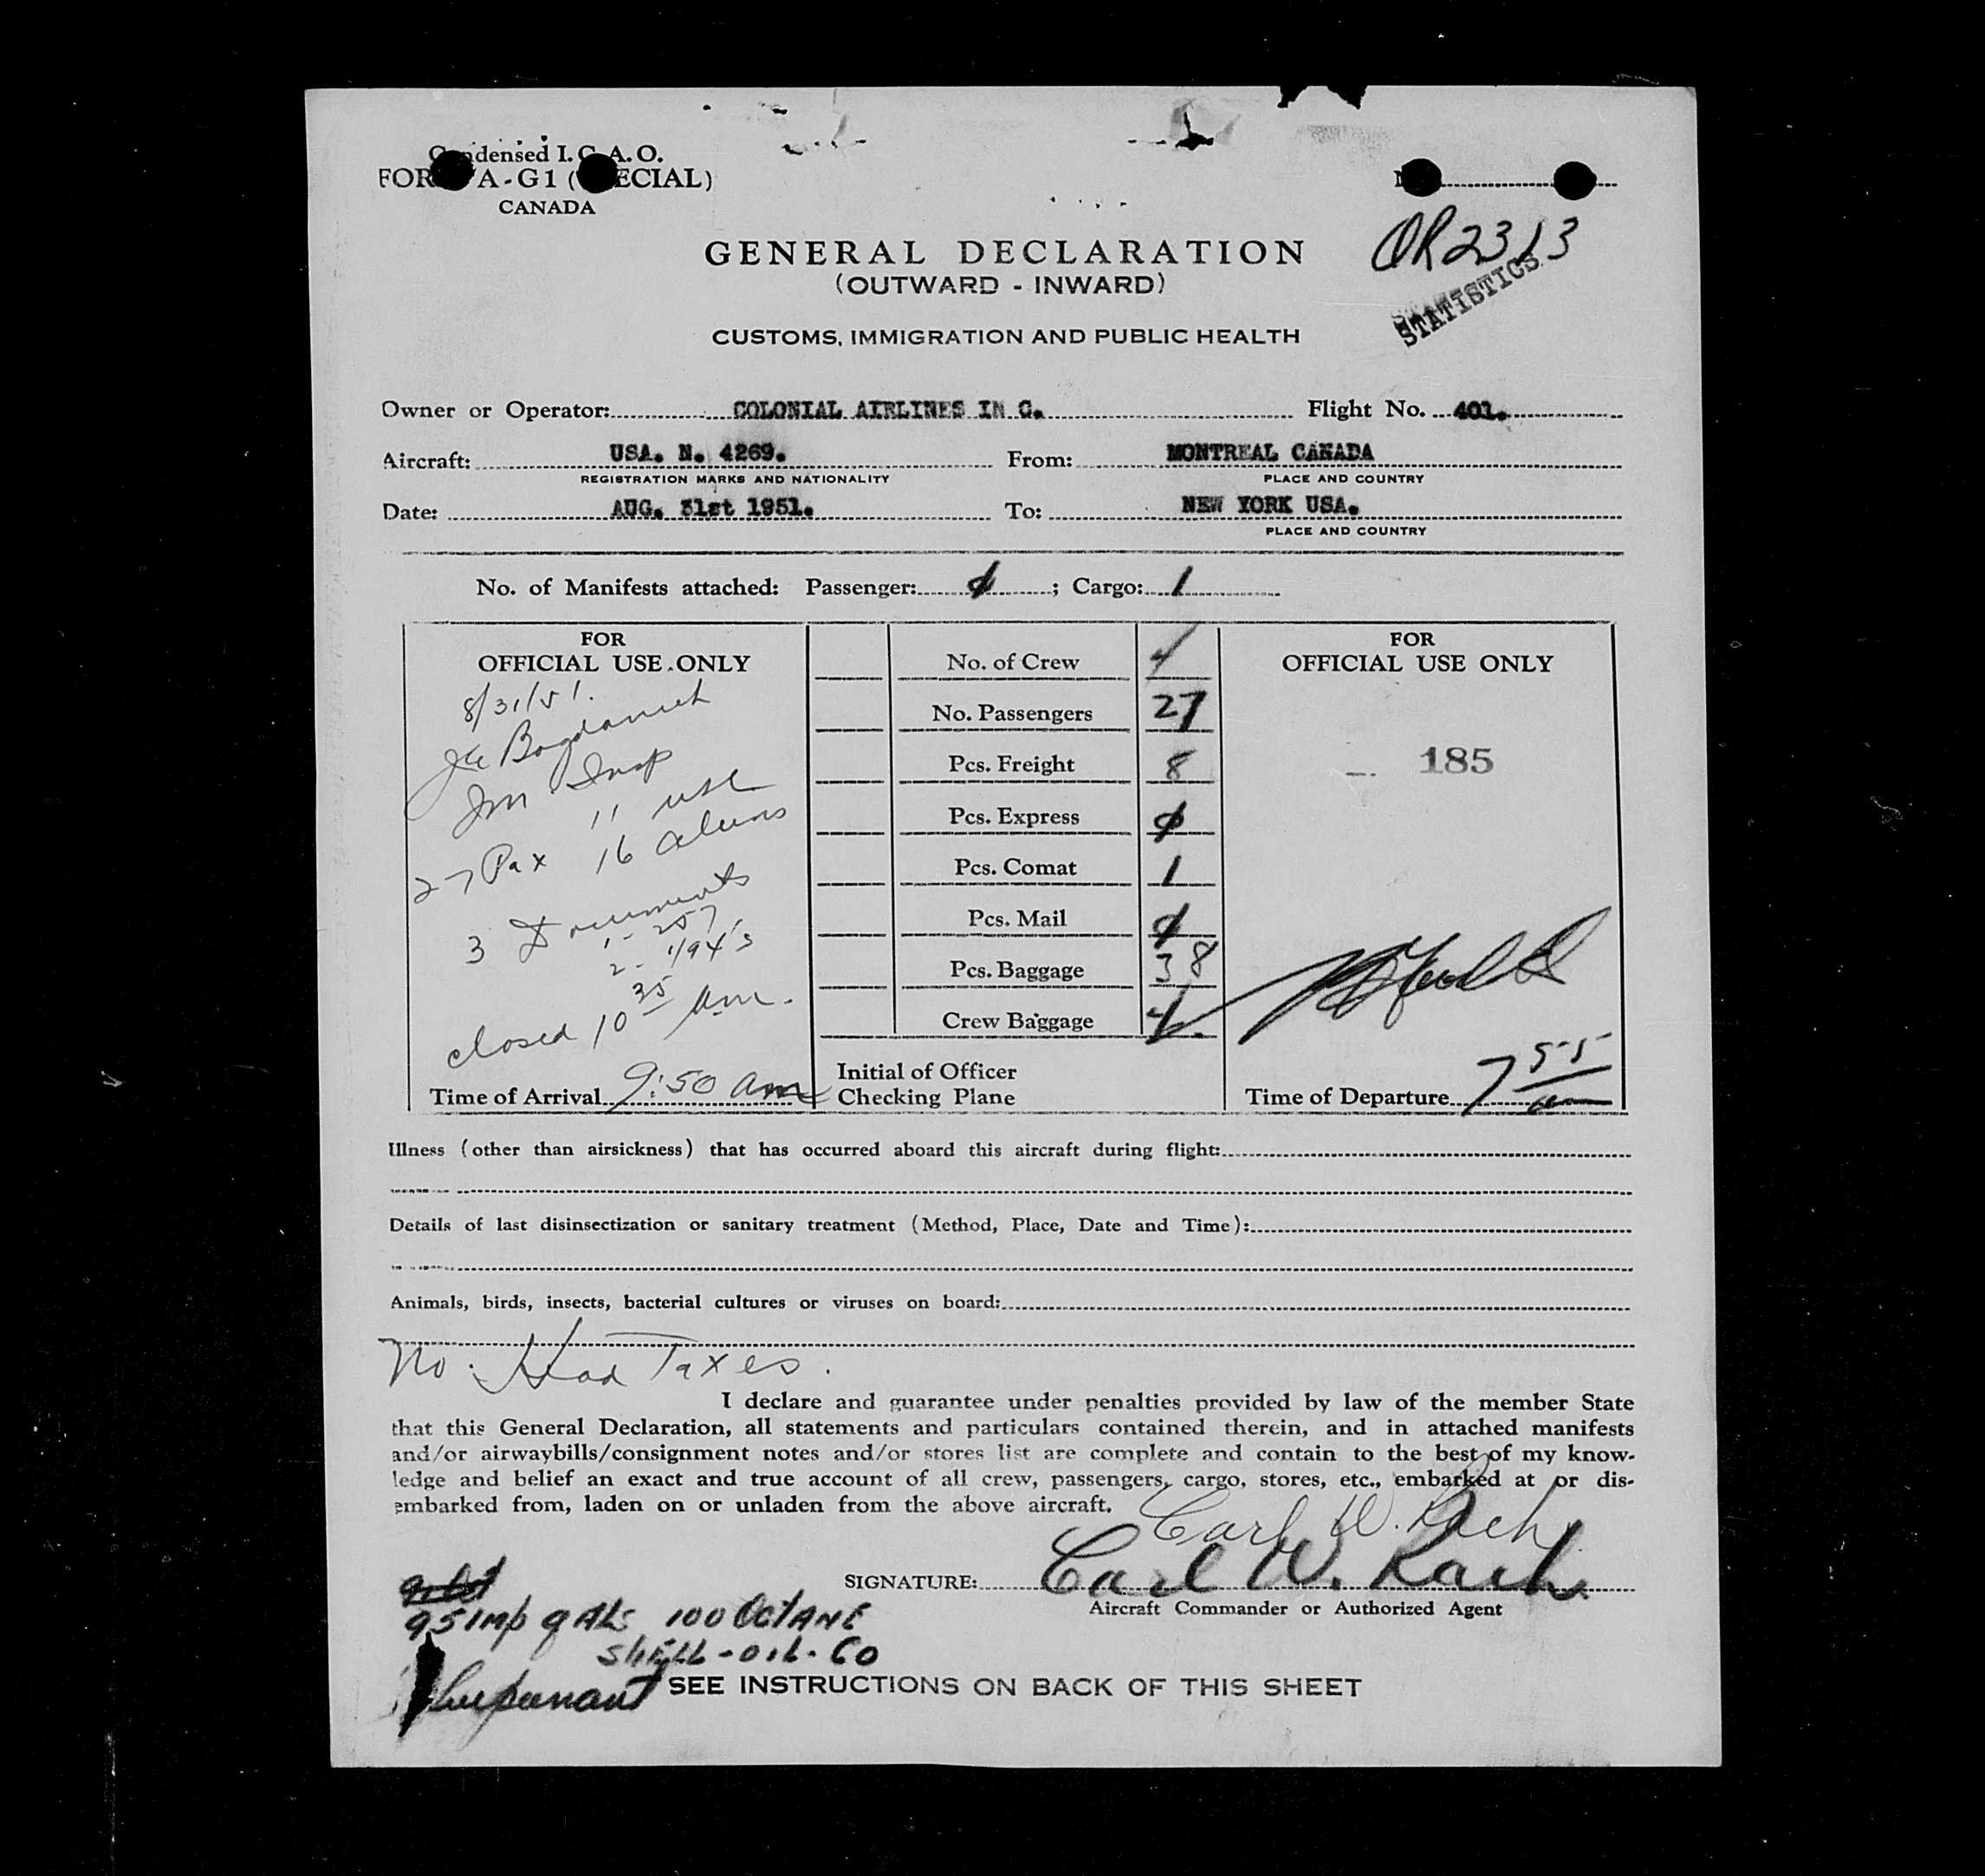 Condensed I.C.A.O.
FORM A-G1 (SPECIAL)
CANADA
GENERAL DECLARATION
(OUTWARD - INWARD)
CUSTOMS, IMMIGRATION AND PUBLIC HEALTH
STATISTICS
Owner or Operator: COLONIAL AIRLINES IN C. Flight No. 401.
Aircraft: USA. N. 4269. From: MONTREAL CANADA
REGISTRATION MARKS AND NATIONALITY PLACE AND COUNTRY
Date: AUG. 31st 1951. To: NEW YORK USA.
PLACE AND COUNTRY
No. of Manifests attached: Passenger: ; Cargo: 1
FOR
OFFICIAL USE ONLY
8/31/51.
Imm Insp
11 USC
27 Pax 16 aliens
3 Documents
1 - 257
2 - I/94's
closed 10 35 am.
Time of Arrival 9:50 am
No. of Crew 4
No. Passengers 27
Pcs. Freight 8
Pcs. Express
Pcs. Comat 1
Pcs. Mail
Pcs. Baggage 38
Crew Baggage 4
Initial of Officer
Checking Plane
FOR
OFFICIAL USE ONLY
185
Time of Departure 7 55 am
Illness (other than airsickness) that has occurred aboard this aircraft during flight:
Details of last disinsectization or sanitary treatment (Method, Place, Date and Time):
Animals, birds, insects, bacterial cultures or viruses on board:
No Head Taxes.
I declare and guarantee under penalties provided by law of the member State
that this General Declaration, all statements and particulars contained therein, and in attached manifests
and/or airwaybills/consignment notes and/or stores list are complete and contain to the best of my know-
ledge and belief an exact and true account of all crew, passengers, cargo, stores, etc., embarked at or dis-
embarked from, laden on or unladen from the above aircraft.
Carl W. Rach
SIGNATURE: Carl W. Rach
Aircraft Commander or Authorized Agent
95 IMP GALS 100 OCTANE
SHELL-OIL-CO
SEE INSTRUCTIONS ON BACK OF THIS SHEET